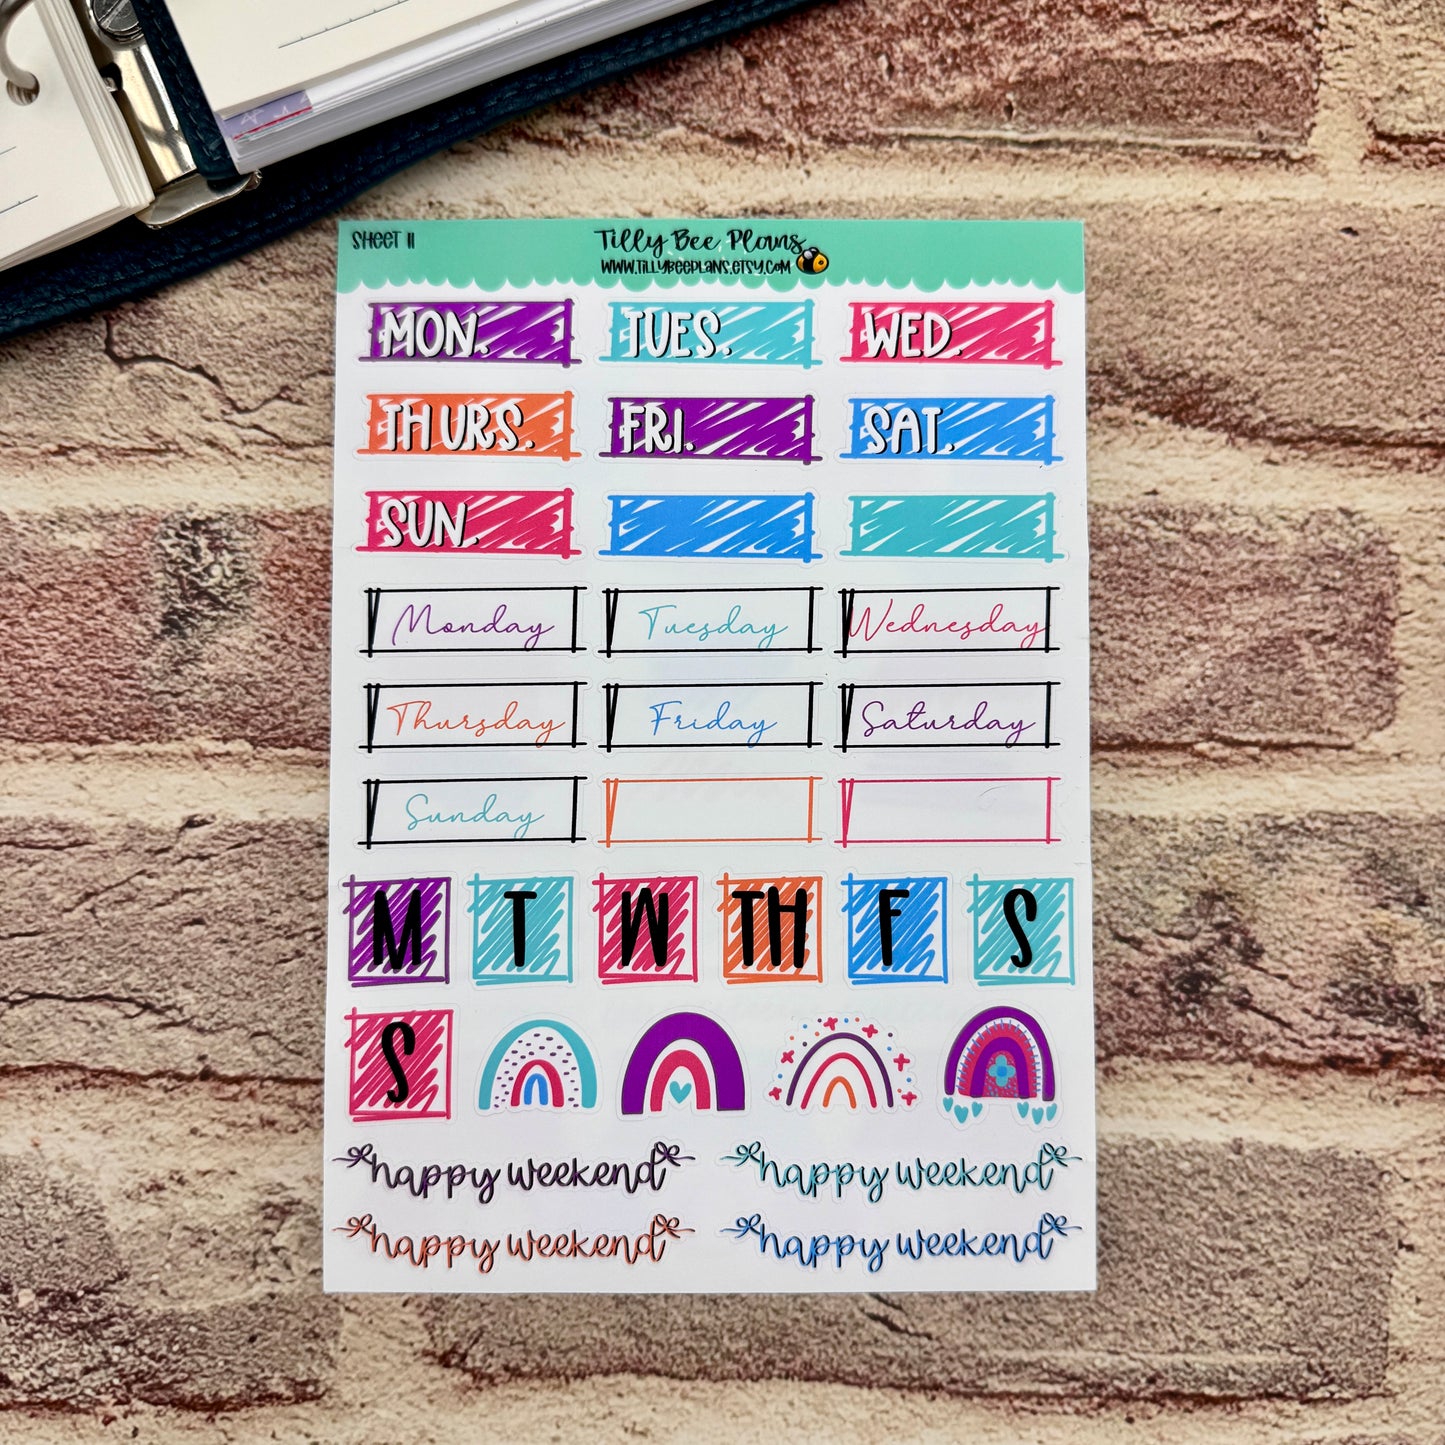 SHEET 11
Tilly Bee Plans
WWW.TILLYBEEPLANS.ETSY.COM
MON. TUES. WED.
THURS. FRI. SAT.
SUN.
Monday Tuesday Wednesday
Thursday Friday Saturday
Sunday
M T W TH F S
S
happy weekend happy weekend
happy weekend happy weekend